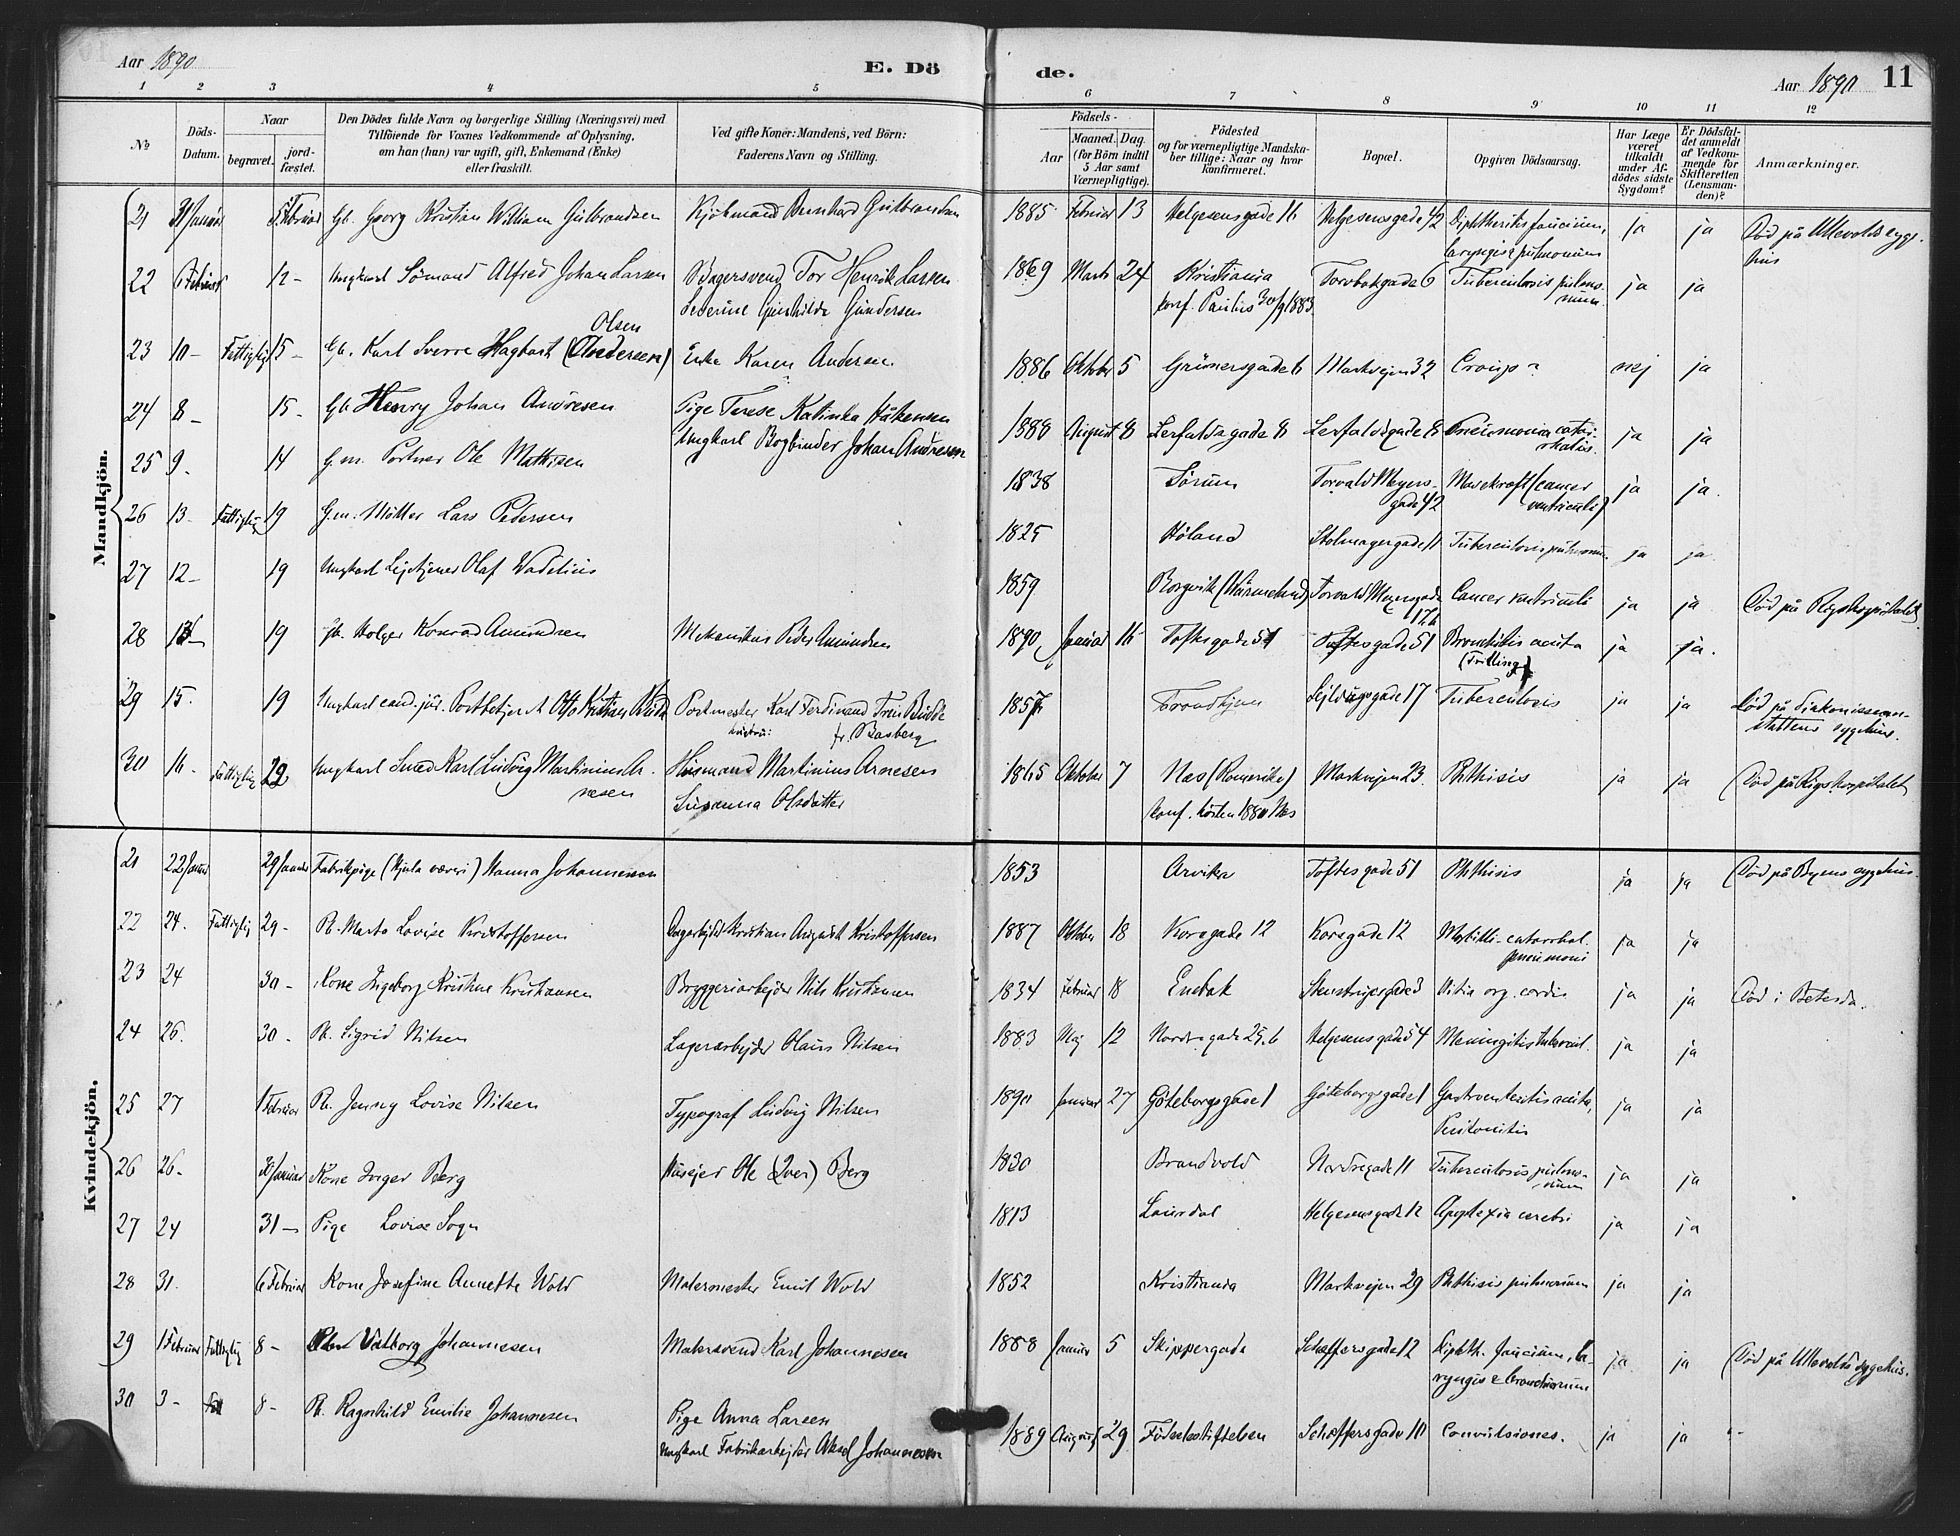 Aar 1890
E. Dö
de.
Aar 1890
11
1 2 3 4 5 6 7 8 9 10 11 12
№
Döds-Datum.
Naar
begravet.
jord-fæstet.
Den Dödes fulde Navn og borgerlige Stilling (Næringsvei) med
Tilföiende for Voxnes Vedkommende af Oplysning,
om han (hun) var ugift, gift, Enkemand (Enke)
eller fraskilt.
Ved gifte Koner: Mandens, ved Börn:
Faderens Navn og Stilling.
Födsels-
Aar
Maaned. Dag.
(for Börn indtil
5 Aar samt
Værnepligtige).
Födested
og for værnepligtige Mandska-
ber tillige: Naar og hvor
konfirmeret.
Bopæl.
Opgiven Dödsaarsag.
Har Læge
været
tilkaldt
under Af-
dödes sidste
Sygdom?
Er Dödsfal-
det anmeldt
af Vedkom-
mende for
Skifteretten
(Lensman-
den)?
Anmærkninger.
Mandkjön.
21 31 Januar Februar Gb. Georg Kristian William Gulbrandsen Kjøbmand Bernhard Gulbrandsen 1885 Februar 13 Helgesensgade 16 Helgesensgade 42 Diphtheritis faucium, ja ja Død på Ullevolds syge-
laryngis & pulmonum hus
22 6 Februar 12 - Ungkarl Sømand Alfred Johan Larsen Bagersvend Tor Henrik Larsen 1869 Marts 24 Kristiania Torvbakgade 6 Tuberculosis pulmo- ja ja
Severine Gunhilda Gundersen konf. Paulus 30/9 1883 num.
Olsen
23 10 - Fattiglig 15 - Gb. Karl Sverre Hagbart (Andersen) Enke Karen Andersen 1886 Oktober 5 Grünersgade 6 Markvejen 32 Croup? nej ja
24 8 - 15 - Gb. Henry Johan Andresen Pige Terese Katinka Håkensen 1888 August 8 Lerfaldsgade 8 Lerfaldsgade 8 Pneumonia catar- ja ja
Ungkarl Bogbinder Johan Andresen rhalis.
25 9. 14 G.m. Portner Ole Mathisen 1838 Sørum Torvald Meyers- Mavekræft (cancer ja ja.
gade 42 ventriculi)
26 13 - Fattiglig 19 G.m. Møller Lars Pedersen 1825 Høland Stolmagergade 11 Tuberculosis pulmon. ja ja.
27 12 - 19 Ungkarl Lejetjener Olaf Wadelius 1859 Borgvik (Wärmeland) Torvald Meyersgade Cancer ventriculi ja ja Død på Rigshospitalet
17b
28 19 Gb. Holger Konrad Amundsen Mekanikus Peder Amundsen 1890 Januar 16 Toftesgade 51 Toftesgade 51 Bronchitis acuta ja ja.
(Trilling)
29 15. 19 Ungkarl cand. jur. Otto Kristian Budde Postmester Karl Ferdinand Budde 1857 Trondhjem 17 Tuberculosis ja ja Død på diakonissean-
fr. Basberg staltens sygehus.
30 16 - Fattiglig 22 Ungkarl Smed Karl Ludvig Martinius Ar- Husmand Martinius Arnesen 1865 Oktober 7 Næs (Romerike) Markvejen 23. Phthisis ja ja Død på Rigshospitalet
nesen Susanna Olsdatter konf. høsten 1880 Næs
Kvindekjön.
21 22 Januar 29 Januar Fabrikpige (Hjula væveri) Hanna Johannessen 1853 Arvika Toftesgade 51 Phthisis ja ja Død på Byens sygehus.
22 24. Fattiglig 29 - Pb. Marta Lovise Kristoffersen Dagarbejder Kristian August Kristoffersen 1887 Oktober 18 Korsgade 12 Korsgade 12 Morbilli - catarrhal. ja ja
pneumoni
23 24 30 - Kone Ingeborg Kristine Kristiansen Bryggeriarbejder Nils Kristiansen 1834 Februar 18 Enebak Stenstrupsgade 3 Vitia org. cordis ja ja Død i Betesda.
24 26. 30 - Pb. Sigrid Nilsen Lagerarbejder Hans Nilsen 1883 Maj 12 Nordregade 25.b Helgesensgade 54 Meningitis tubercul. ja ja
25 27 1 Februar Pb. Jenny Lovise Nilsen Typograf Ludvig Nilsen 1890 Januar 27 Göteborgsgade 1 Göteborgsgade 1 Gastroenteritis acuta, ja ja
Peritonitis
26 26. 30 Januar Kone Inger Berg Husejer Ole (Iver) Berg 1830 Brandvold Nordregade 11 Tuberculosis pulmo- ja ja
num
27 24 31 - Pige Lovise Sogn 1813 Laurdal Helgesensgade 12 Apoplexia cerebri ja ja
28 31. 6 Februar Kone Josefine Annette Wold Malermester Emil Wold 1852 Kristiania Markvejen 29 Phthisis pulmonum ja ja
29 1 Februar Fattiglig 8 - Valborg Johannessen Malersvend Karl Johannessen 1888 Januar 5 Skippergade Schæffersgade 12 Diphth. faucium, la- ja ja Død på Ullevolds sygehus.
ryngis & bronchiorum
30 3 - 8 - Pb. Ragnhild Emilie Johannesen Pige Anna Larsen 1889 August 29 Fødselsstiftelsen Schæffersgade 10 Convulsiones. ja ja
Ungkarl Fabrikarbejder Aksel Johannesen